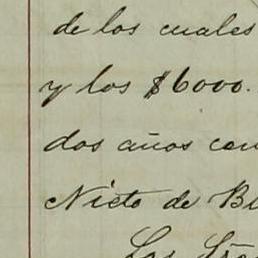 de los cuales
y los $6000.
dos años con
Nieto de Bl
Los Sres